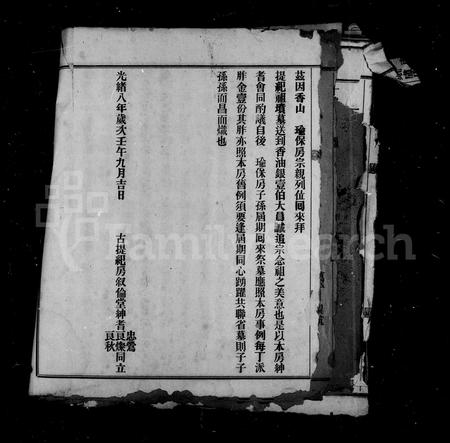 茲因香山　瑜保房宗親列位囘來拜
提祀祖墳墓送到香油銀壹伯大員誠追宗念祖之美意也是以本房紳
者會同酌議自後　瑜保房子孫屆期囘來祭墓應照本房事例每丁派
胙金壹份其胙亦照本房舊例須要逢屆期同心踴躍共聯省墓則子子
孫孫而昌而熾也
光緒八年歲次壬午九月吉日　古提祀房叙倫堂紳耆良燦同立
忠鶯
良秋
FamilySearch